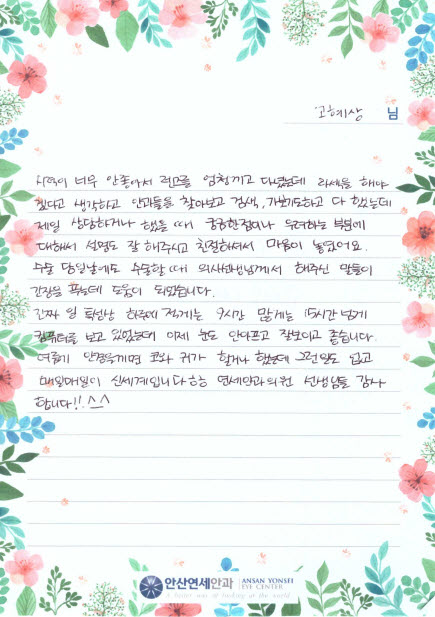 고혜상 님
시력이 너무 안좋아서 렌즈를 엄청끼고 다녔는데 라섹을 해야
겠다고 생각하고 안과들을 찾아보고 검색, 가보기도하고 다 했는데
제일 상담하거나 했을 때 궁금한점이나 우려하는 부분에
대해서 설명도 잘 해주시고 친절하셔서 마음이 놓였어요.
수술 당일날에도 수술할때 의사선생님께서 해주신 말들이
긴장을 푸는데 도움이 되었습니다.
진짜 일 특성상 하루에 적게는 9시간 많게는 15시간 넘게
컴퓨터를 보고 있었는데 이제 눈도 안아프고 잘보이고 좋습니다.
여름기 안경을끼면 코와 귀가 헐거나 했는데 그런일도 없고
매일매일이 신세계입니다 ㅎㅎ 연세안과의원 선생님들 감사
합니다!! ^^
안산연세안과 ANSAN YONSEI
EYE CENTER
A better way of looking at the world